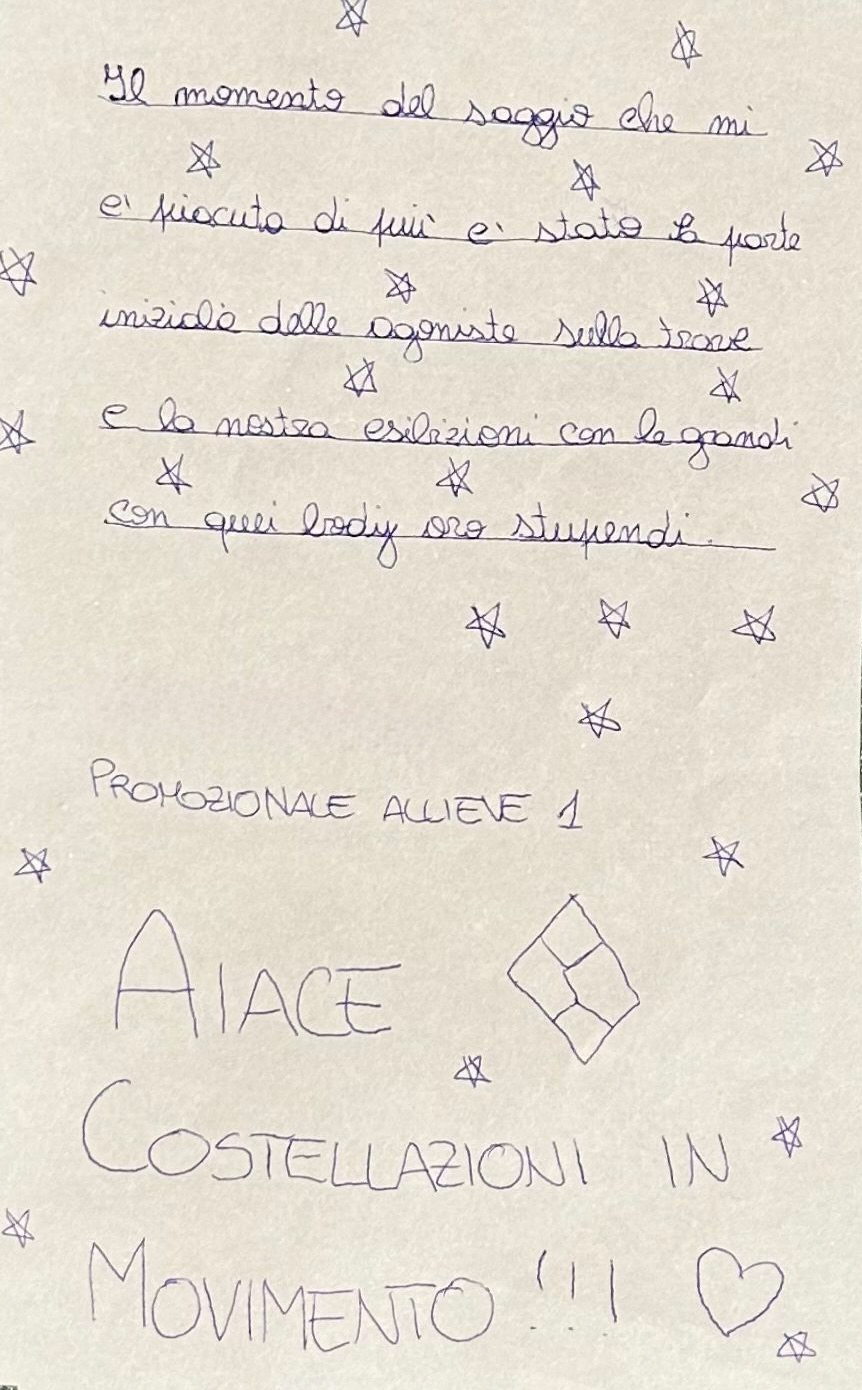 Il momento del saggio che mi
e' piaciuto di più e' stato la parte
iniziale delle agoniste sulla trave
e la nostra esibizioni con le grandi
con quei body oro stupendi.
PROMOZIONALE ALLIEVE 1
AIACE
COSTELLAZIONI IN
MOVIMENTO!!!